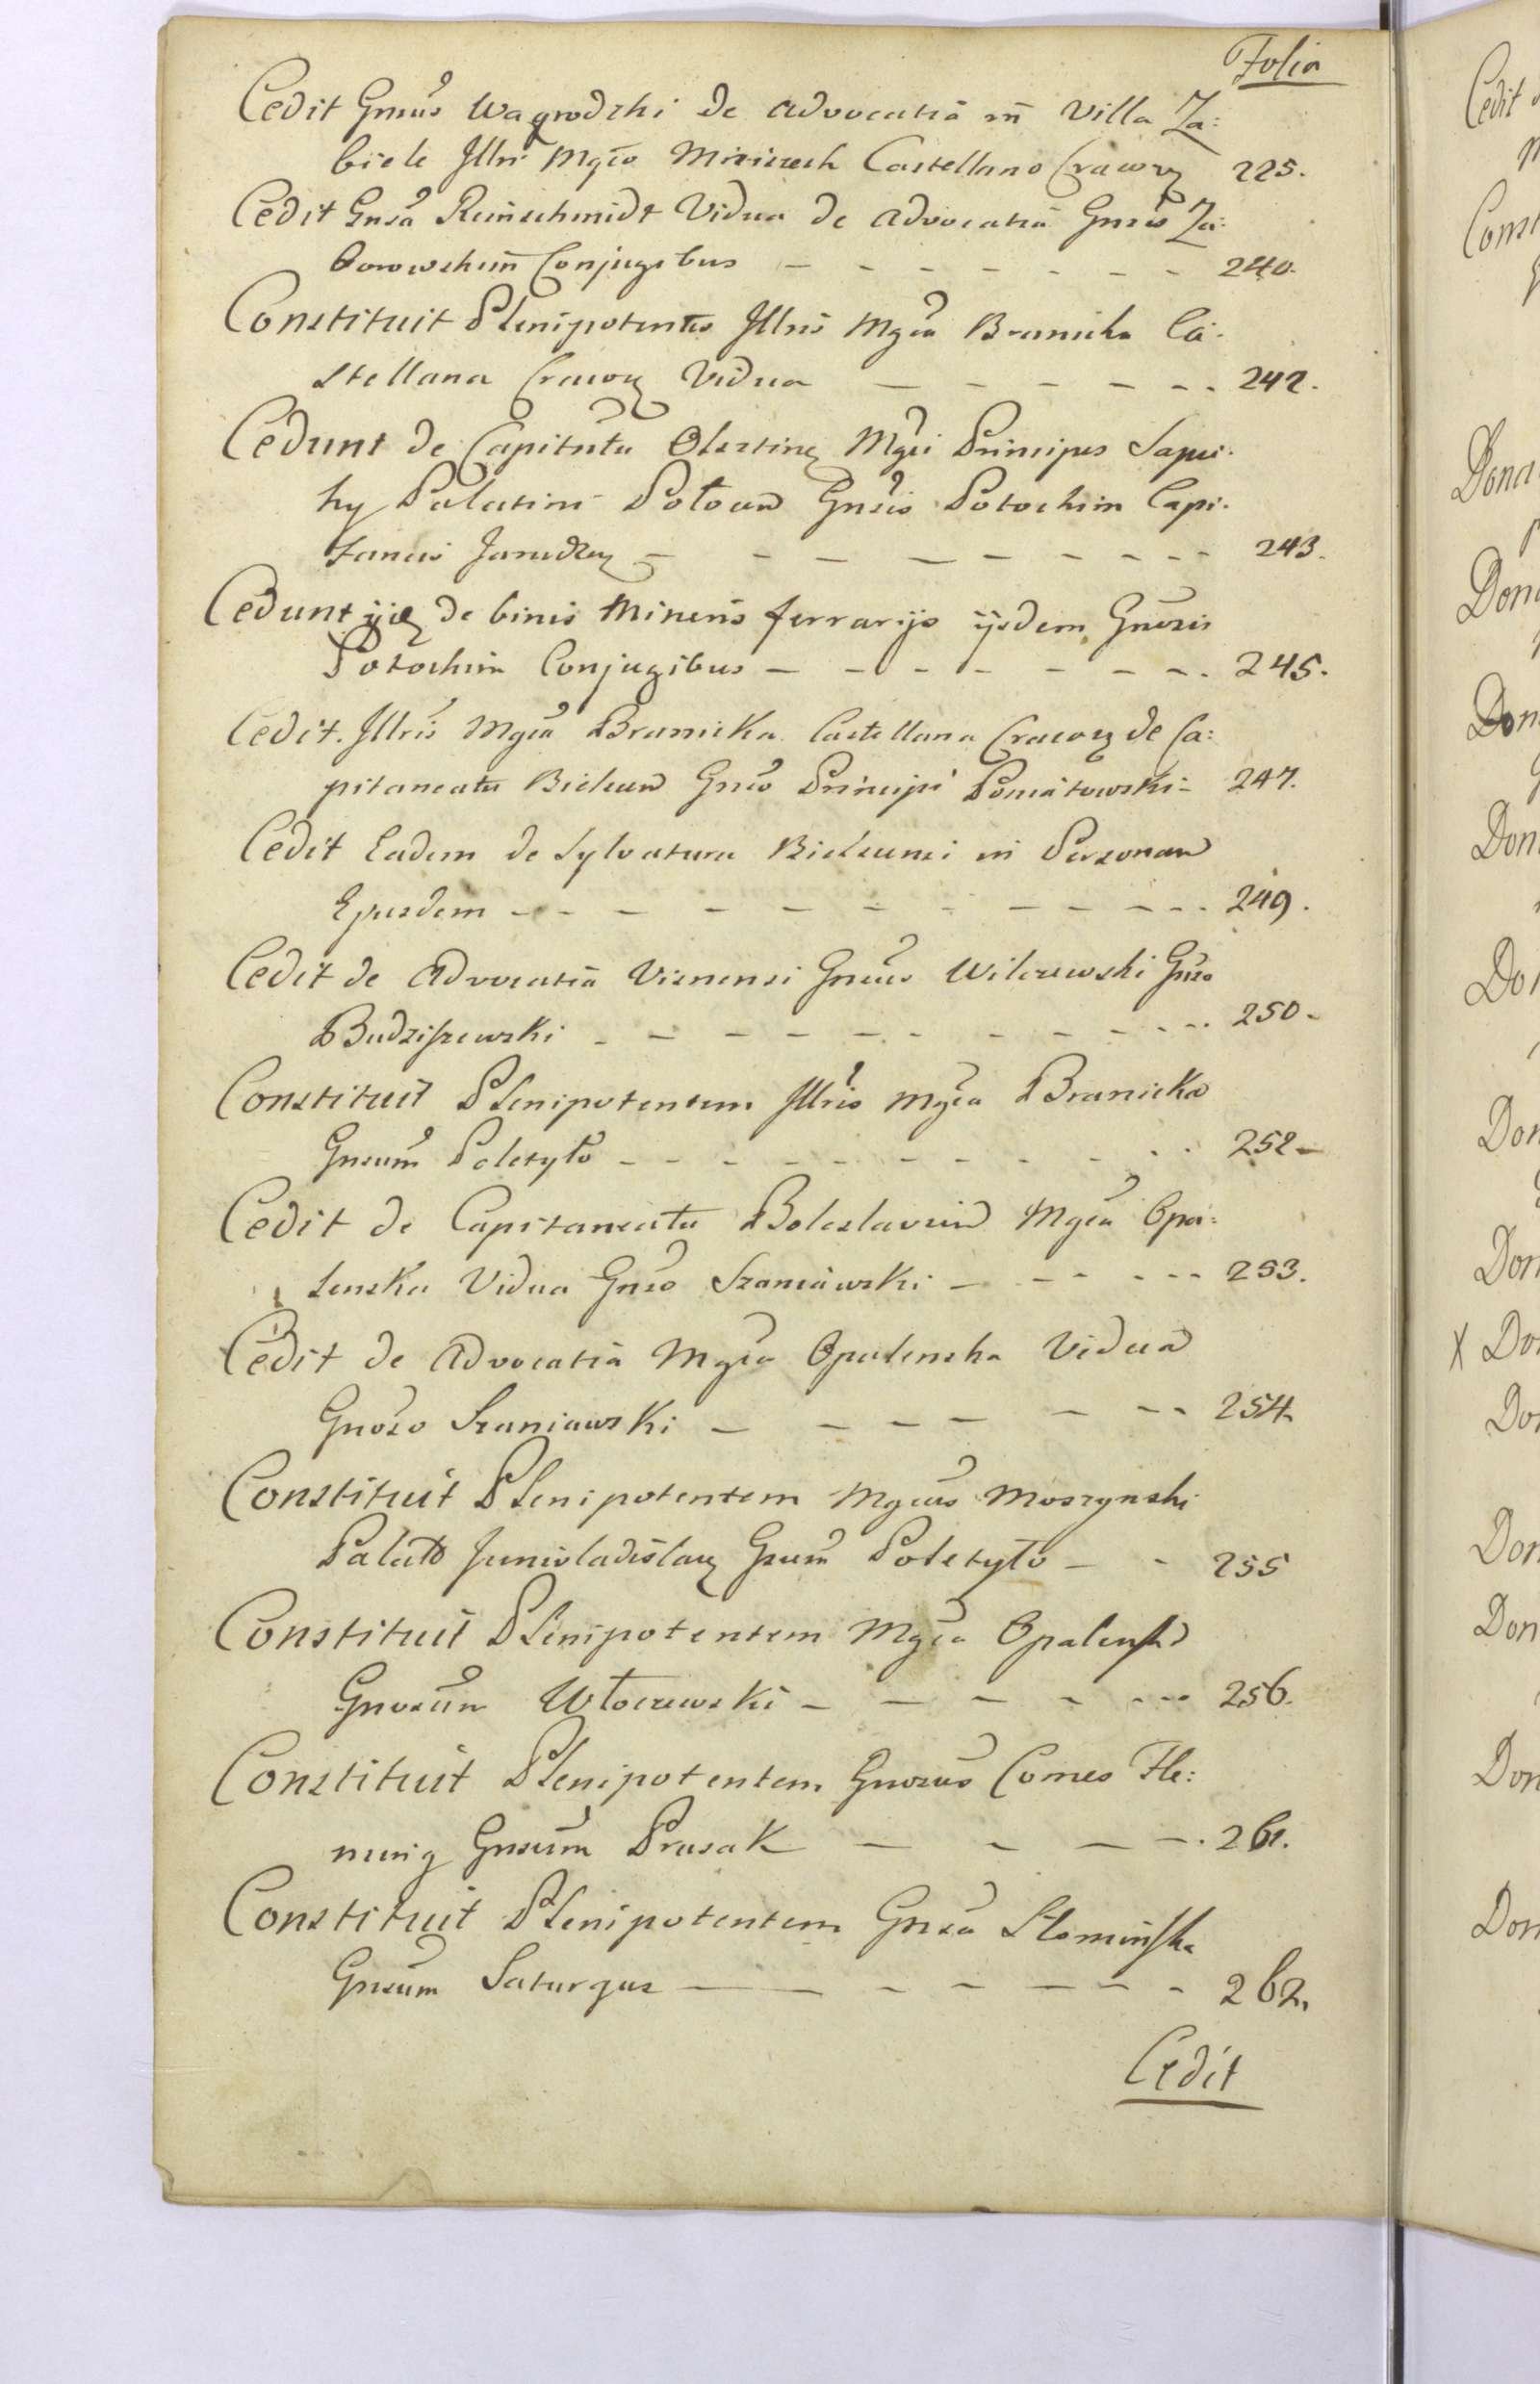 Folia
Cedit Gnsus Wagrodzki de Advocatiâ in Villa Za:
biele Illri Mgco Mniszech Castellano Cracovz 225.
Cedit Gnsa Reinschmidt Vidua de Advocatiâ Gnsis Za:
borowskim Conjugibus - - - - - - - 240.
Constituit Plenipotentes Illris Mgca Branicka Ca:
stellana Cracovz Vidua - - - - - - 242.
Cedunt de Capitntu Olsztinz Mgci Principes Sapie:
hy Palatini Połocen Gnsis Potockim Capi:
taneis - - - - - - - - 243.
Cedunt iidz de binis Mineris ferrarijs ijsdem Gnosis
Potockim Conjugibus - - - - - - - - 245.
Cedit Illris Mgca Branicka Castellana Cracovz de Ca:
pitaneatu Bielscen Gnso Principi Poniatowski - 247.
Cedit Eadem de Sylvatura Bielscensi in Personam
Ejusdem - - - - - - - - - - - - 249.
Cedit de Advocatiâ Visnensi Gnsus Wilczewski Gnso
Budziszewski - - - - - - - - - - - 250.
Constituit Plenipotentem Illris Mgca Branicka
Gnsum Poletyło - - - - - - - - - - 252 -
Cedit de Capitaneatu Boleslavien Mgca Opa:
lenska Vidua Gnso Szaniawski - - - - - - 253.
Cedit de Advocatiâ Mgca Opalenska Vidua
Gnoso Szaniawski - - - - - - - 254.
Constituit Plenipotentem Mgcus Moszynski
Palats Junivladislavz Gnsum Poletyło - - 255
Constituit Plenipotentem Mgca Opalenska
Gnosum Włoczewski - - - - - - - 256.
Constituit Plenipotentem Gnosus Comes Fle:
ming Gnsum Prasak - - - - - 261.
Constituit Plenipotentem Gnsa Słominska
Gnsum Saturgus - - - - - - - - 262.
Cedit